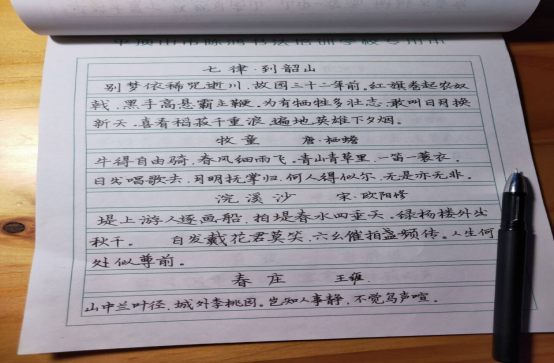 七律·到韶山
别梦依稀咒逝川，故园三十二年前。红旗卷起农奴
戟，黑手高悬霸主鞭。为有牺牲多壮志，敢叫日月换
新天。喜看稻菽千重浪，遍地英雄下夕烟。
牧童 唐·栖蟾
牛得自由骑，春风细雨飞。青山青草里，一笛一蓑衣。
日出唱歌去，月明抚掌归。何人得似尔，无是亦无非。
浣溪沙 宋·欧阳修
堤上游人逐画船，拍堤春水四垂天。绿杨楼外出
秋千。 白发戴花君莫笑，六幺催拍盏频传。人生何
处似尊前。
春庄 王维
山中兰叶径，城外李桃园。岂知人事静，不觉鸟声喧。